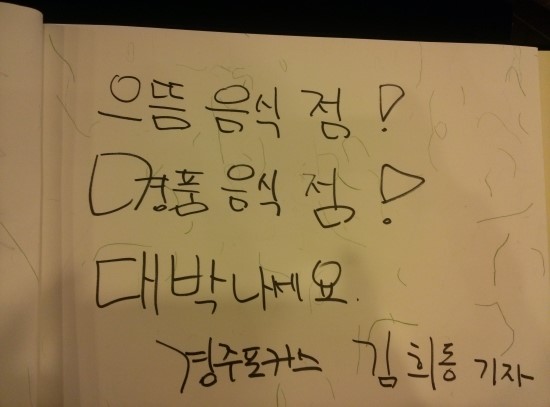 으뜸 음식 점!
명품 음식 점!
대박나세요.
경주포커스 김희동 기자